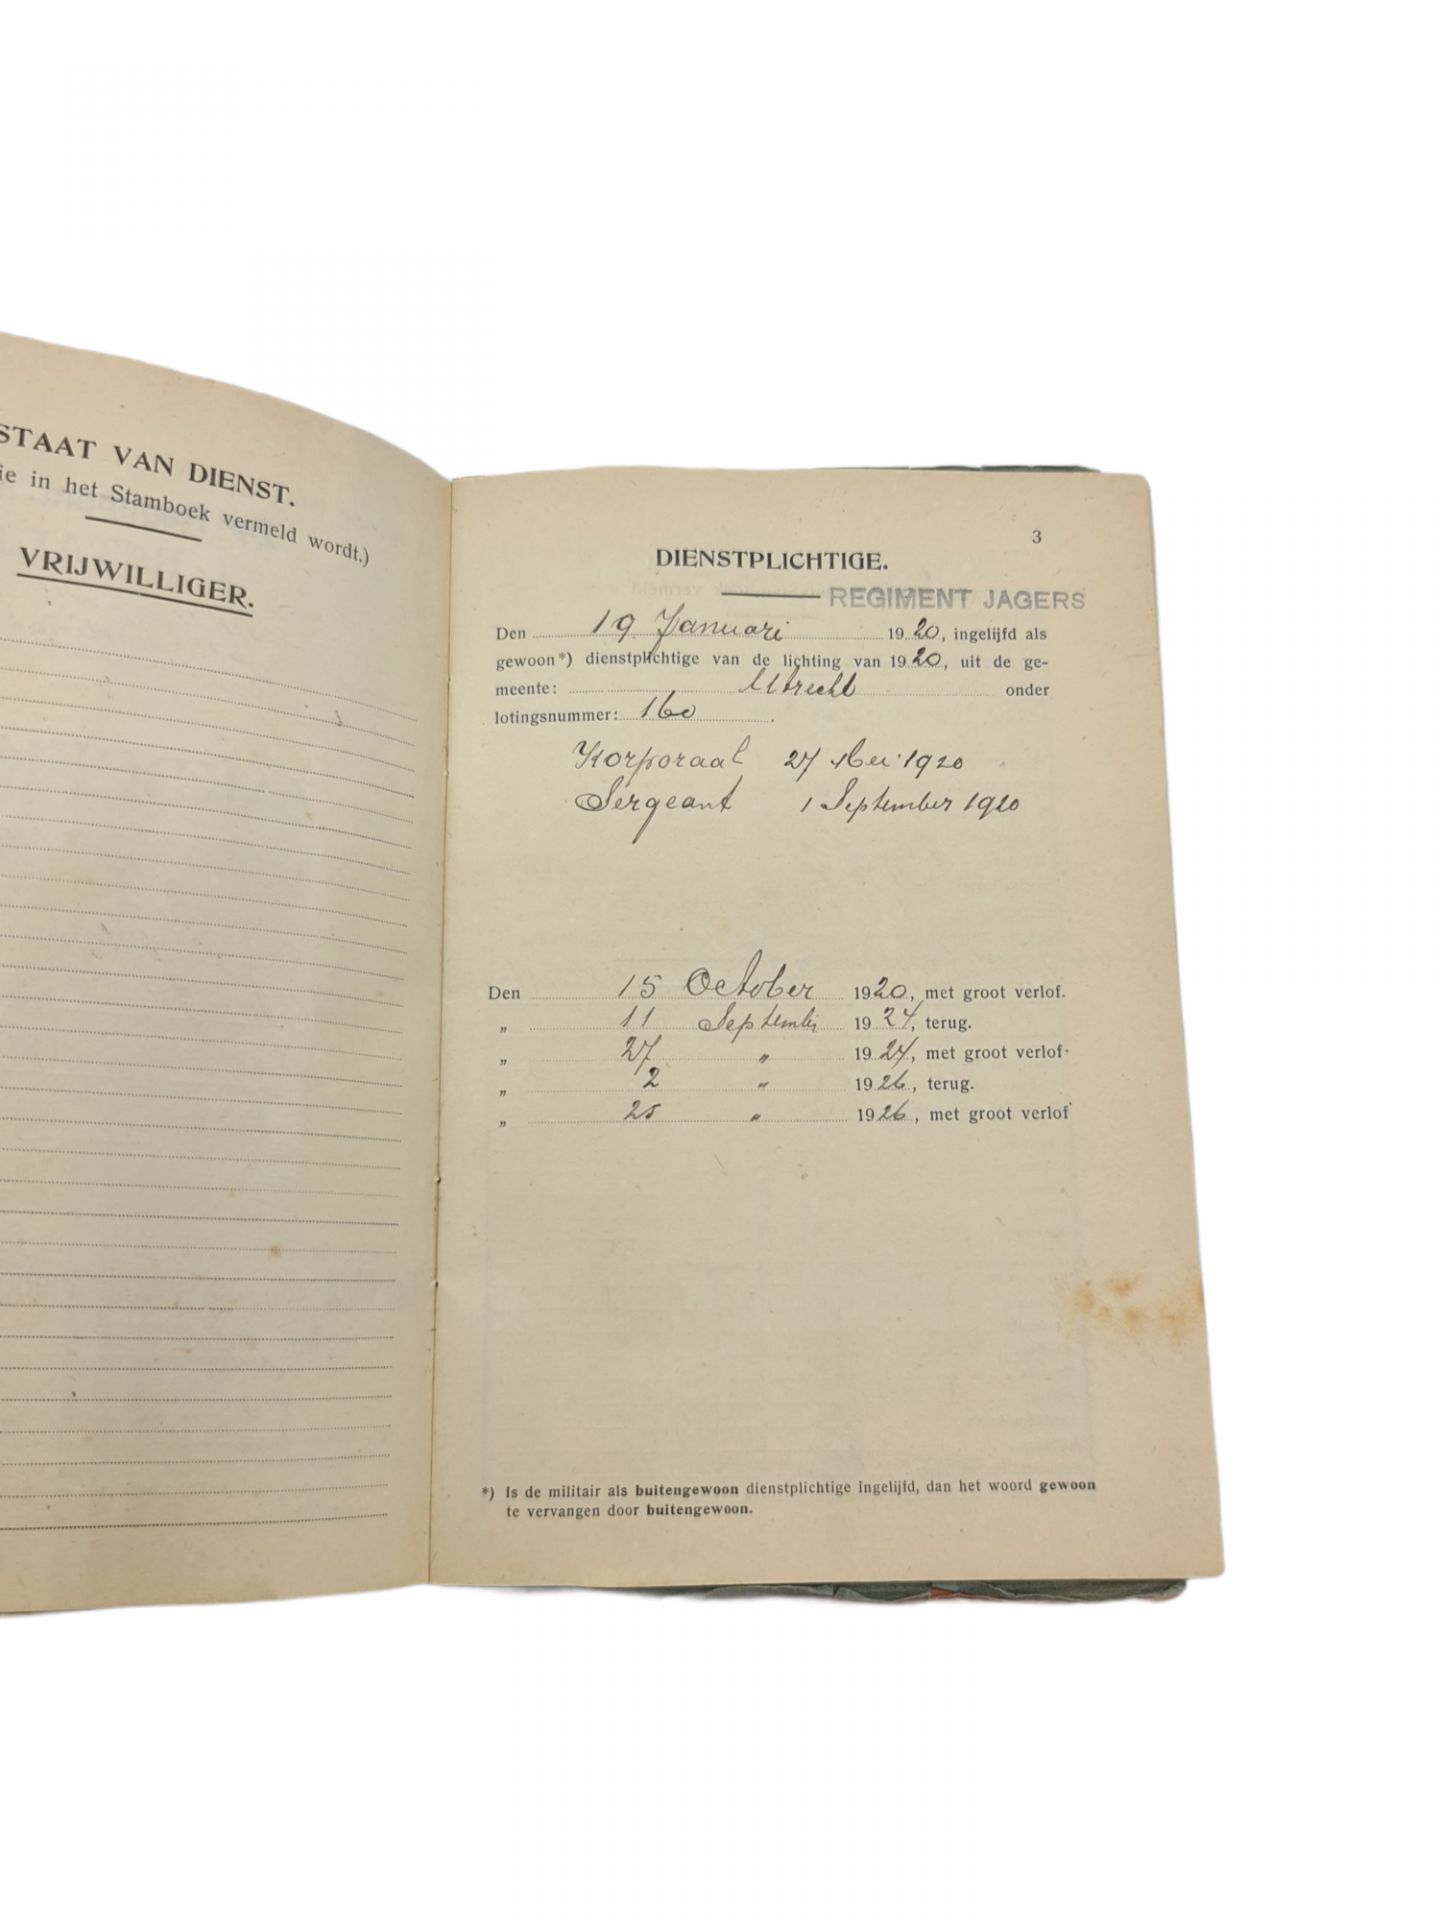 STAAT VAN DIENST.
ie in het Stamboek vermeld wordt.)
VRIJWILLIGER.
3
DIENSTPLICHTIGE.
REGIMENT JAGERS
Den 19 Januari 1920, ingelijfd als
gewoon*) dienstplichtige van de lichting van 1920, uit de ge-
meente: Utrecht onder
lotingsnummer: 160.
Korporaal 27 Mei 1920
Sergeant 1 September 1920
Den 15 October 1920, met groot verlof.
„ 11 September 1924, terug.
„ 27 „ 1924, met groot verlof.
„ 2 „ 1926, terug.
„ 25 „ 1926, met groot verlof
*) Is de militair als buitengewoon dienstplichtige ingelijfd, dan het woord gewoon
te vervangen door buitengewoon.